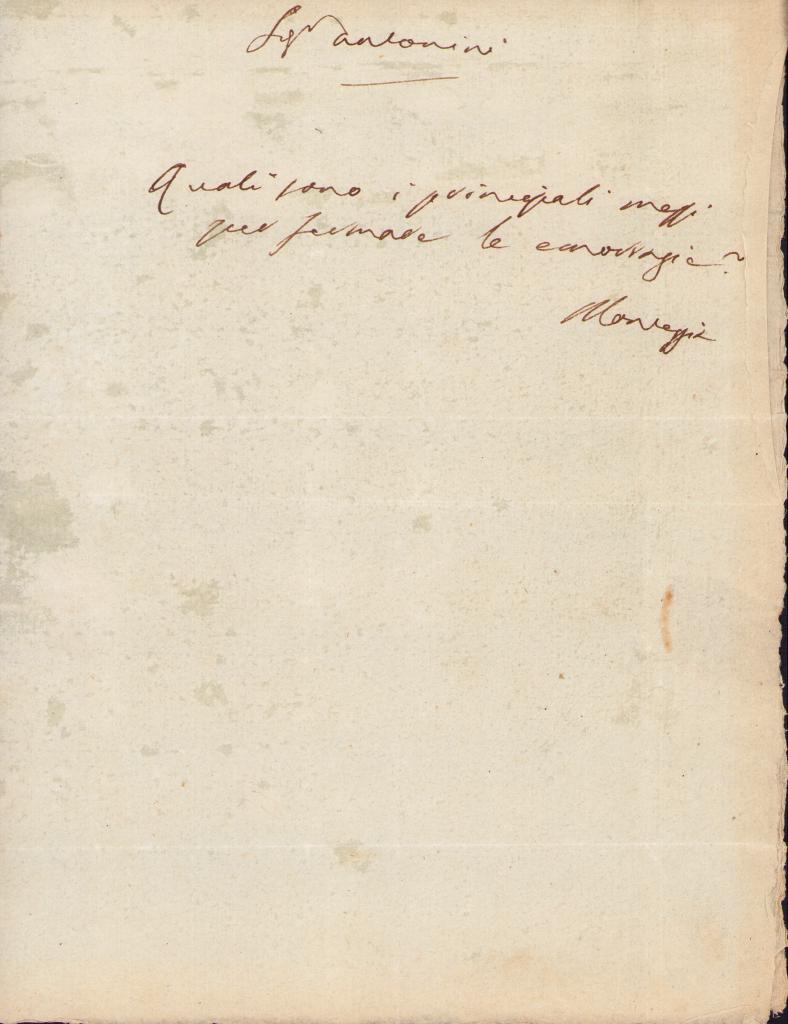 Sigr antonini
Quali sono i principali mezzi
per fermare le emorragie?
Monteggia